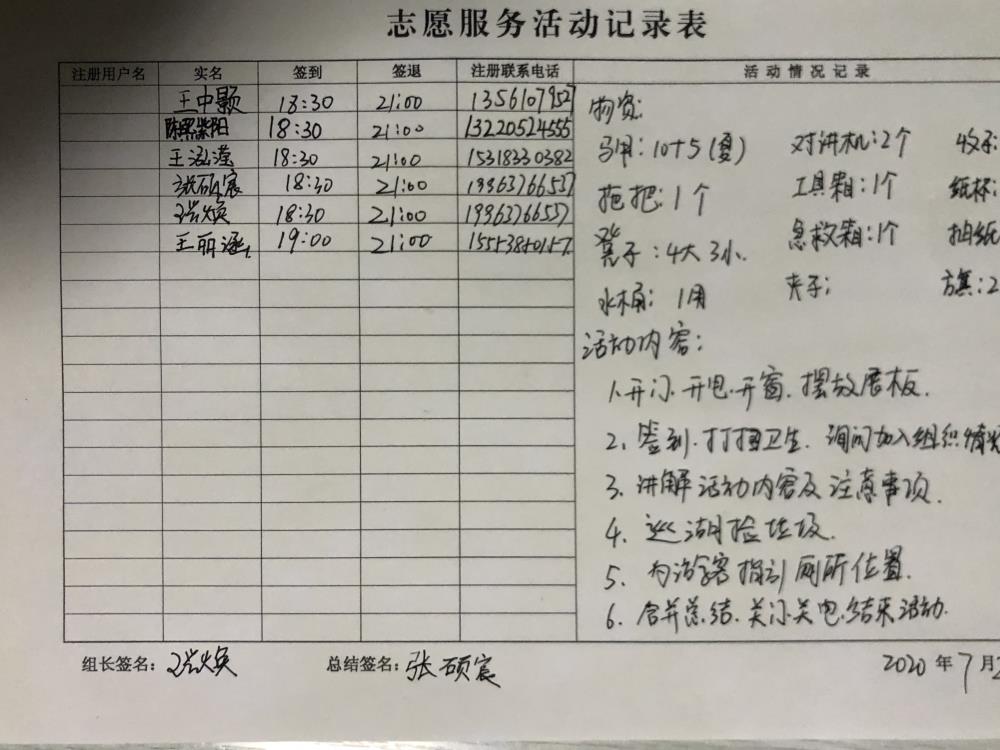 志愿服务活动记录表
注册用户名 实名 签到 签退 注册联系电话 活动情况记录
王中颢 18:30 21:00 13561079527
陈 紫阳 18:30 21:00 13220524555
王泓滢 18:30 21:00 15318330382
张硕宸 18:30 21:00 19963766537
焕 18:30 21:00 19963766537
王丽涵 19:00 21:00
物资:
马甲:10+5(夏) 对讲机:2个
拖把:1个 工具箱:1个 纸杯:
凳子:4大3小. 急救箱:1个 抽纸
水桶:1用 夹子: 旗:2
活动内容:
1.开门.开电.开窗.摆放展板.
2.签到.打扫卫生.询问加入组织情况
3.讲解活动内容及注意事项.
4.巡湖捡垃圾.
5.为游客指引厕所位置.
6.合并总结.关门关电.结束活动.
组长签名: 焕 总结签名:张硕宸 2020年7月2